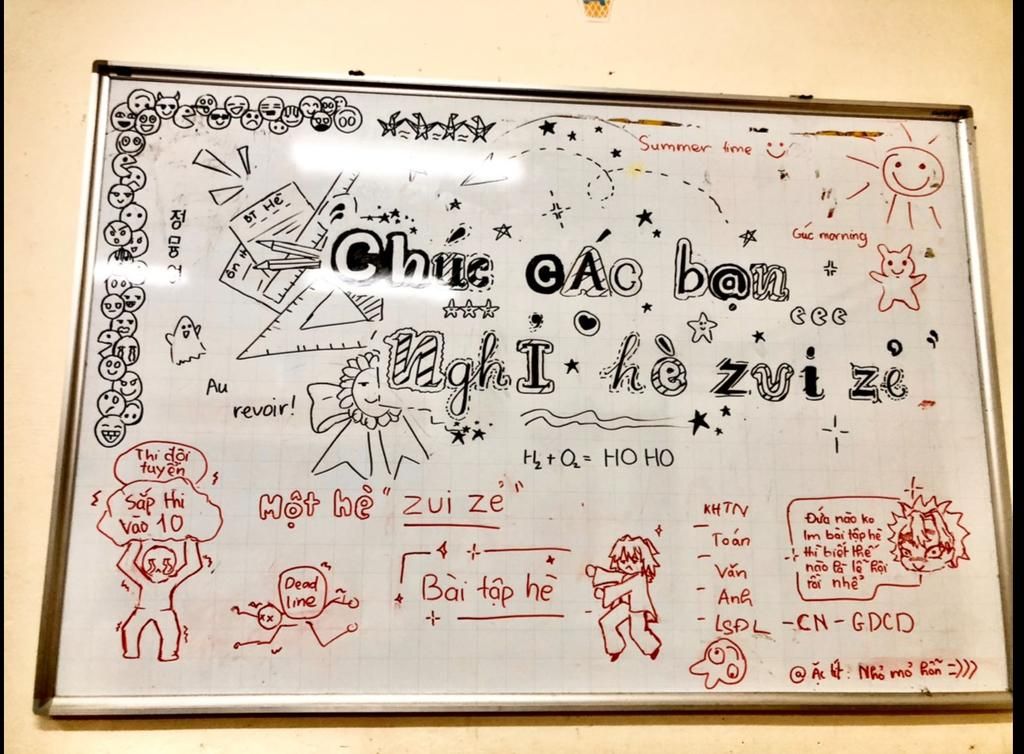 Summer time
BT Hè
정
Gúc morning
Chúc cÁc bạn
NghỈ hè zui zẻ
Au
revoir!
H₂ + O₂ = HO HO
Thi đội
tuyển
Sắp thi
vào 10
Một hè "zui zẻ"
Dead
line
Bài tập hè
KHTN
- Toán
- Văn
- Anh
- LSĐL - CN - GDCD
Đứa nào ko
lm bài tập hè
thì biết thế
nào là lễ hội
rồi nhể
@ Ác lít: Nhỏ mỏ hỗn =)))